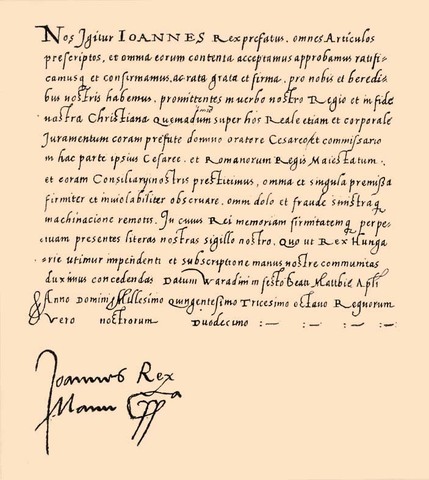 Nos Igitur IOANNES Rex prefatus, omnes Articulos
prescriptos, et omnia eorum contenta acceptamus approbamus ratifi-
camusq et confirmamus, ac rata grata et firma, pro nobis et heredi-
bus nostris habemus, promittentes in verbo nostro Regio et in fide
nostra Christiana Quemadmodum super hos Reale etiam et corporale
Juramentum coram prefato domino oratore Cesareo et commissario
in hac parte ipsius Cesaree . et Romanorum Regis Maiestatum .
et coram Consiliarijs nostris prestitimus, omnia et singula premissa
firmiter et inviolabiliter observare, omni dolo et fraude sinistraq
machinacione remotis. In cuius Rei memoriam firmitatemq perpe-
tuam presentes literas nostras sigillo nostro . Quo ut Rex Hunga
-rie utimur impendenti et subscriptione manus nostre communitas
duximus concedendas Datum Waradini in festo Beati Mathie Apli
Anno Domini Millesimo Quingentesimo Tricesimo octavo Regnorum
Vero nostrorum Duodecimo :— :— :—
Joannes Rex
Manu ppa